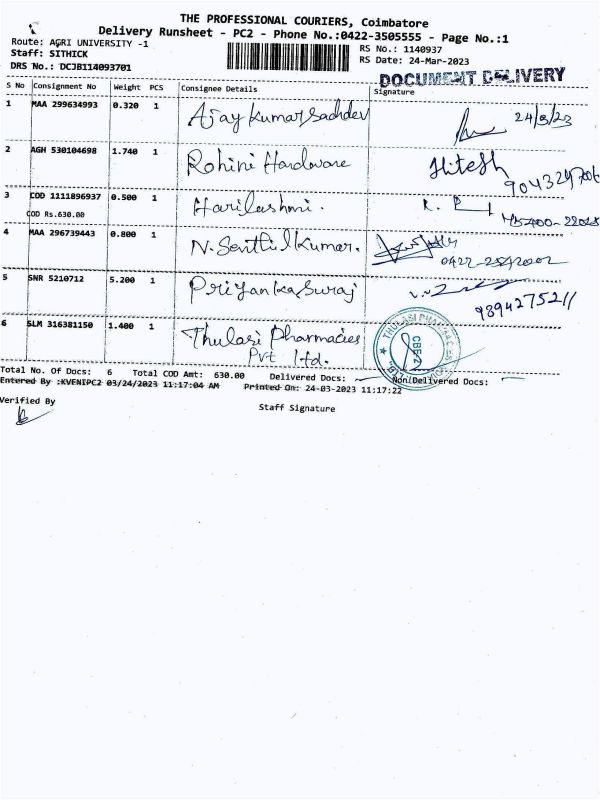 THE PROFESSIONAL COURIERS, Coimbatore
Delivery Runsheet - PC2 - Phone No.:0422-3505555 - Page No.:1
Route: AGRI UNIVERSITY -1
Staff: SITHICK
DRS No.: DCJB114093701
RS No.: 1140937
RS Date: 24-Mar-2023
DOCUMENT DELIVERY
S No Consignment No Weight PCS Consignee Details Signature
1 MAA 299634993 0.320 1 Ajay Kumar Sachdev 24/3/23
2 AGH 530104698 1.740 1 Rohini Hardware Hitesh
3 COD 1111896937 0.500 1 Harilashmi.
COD Rs.630.00
4 MAA 296739443 0.800 1 N. Senthil Kumar.
5 SNR 5210712 5.200 1 Priyanka Suraj
9894275211
6 SLM 316381150 1.400 1 Thulasi Pharmacies
Pvt Ltd.
THULASI PHARMACIES
CBE-2
Total No. Of Docs: 6 Total COD Amt: 630.00 Delivered Docs: Non Delivered Docs:
Entered By :KVENIPC2 03/24/2023 11:17:04 AM Printed On: 24-03-2023 11:17:22
Verified By
Staff Signature